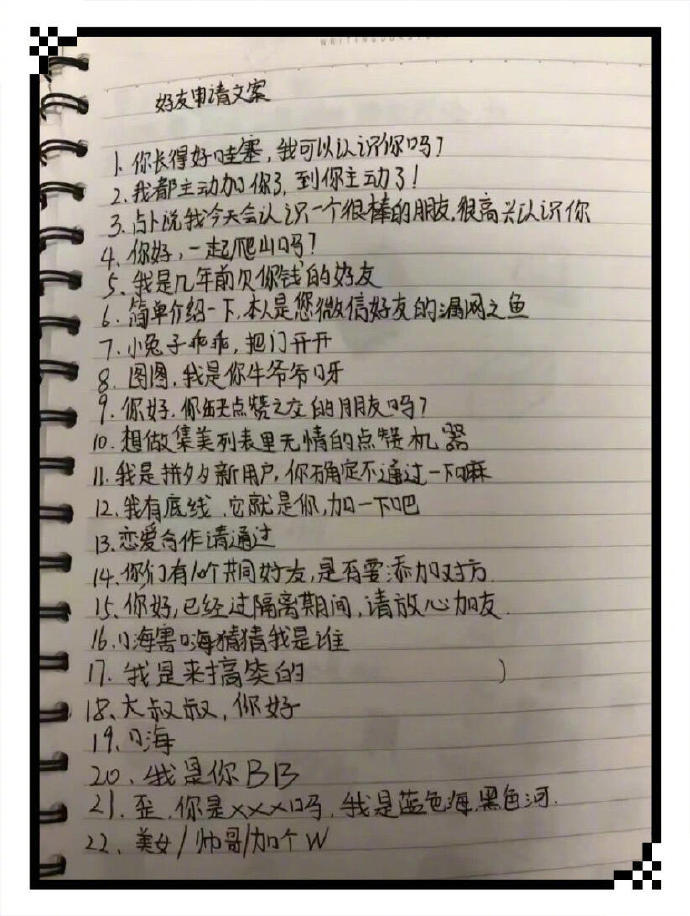 好友申请文案
1. 你长得好哇塞，我可以认识你吗？
2. 我都主动加你了，到你主动了！
3. 占卜说我今天会认识一个很棒的朋友，很高兴认识你
4. 你好，一起爬山吗？
5. 我是几年前欠你钱的好友
6. 简单介绍一下，本人是您微信好友的漏网之鱼
7. 小兔子乖乖，把门开开
8. 图图，我是你牛爷爷呀
9. 你好，你缺点赞之交的朋友吗？
10. 想做集美列表里无情的点赞机器
11. 我是拼夕夕新用户，你确定不通过一下嘛
12. 我有底线，它就是你，加一下吧
13. 恋爱合作请通过
14. 你们有10个共同好友，是否要添加对方
15. 你好，已经过隔离期间，请放心加友.
16. 嗨害嗨猜猜我是谁
17. 我是来搞笑的 ）
18. 大叔叔，你好
19. 嗨
20. 我是你BB
21. 歪，你是xxx吗，我是蓝色海黑色河.
22. 美女/帅哥/加个W